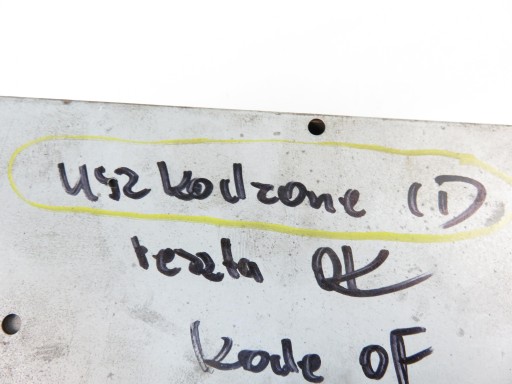 uszkodzone (1)
reszta OK
kode OF